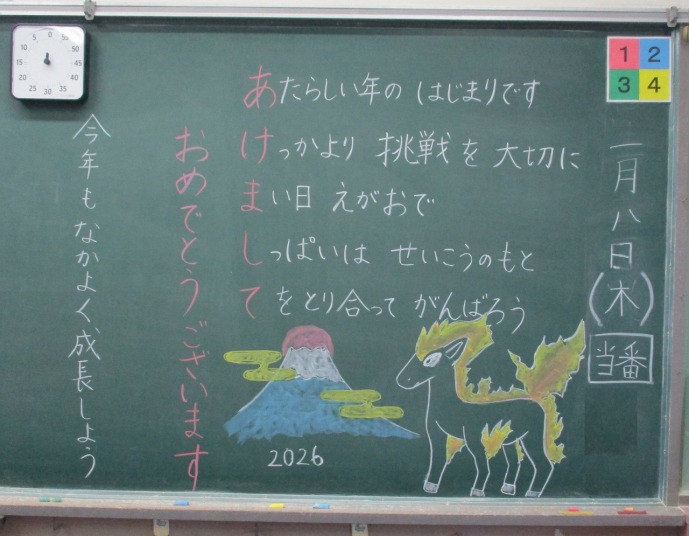 一月八日(木)
当番
あたらしい年の はじまりです
けっかより 挑戦を 大切に
まい日 えがおで
しっぱいは せいこうのもと
てをとり合って がんばろう
おめでとうございます
今年もなかよく成長しよう
2026
1 2
3 4
0
5 55
10 50
15 45
20 40
25 30 35